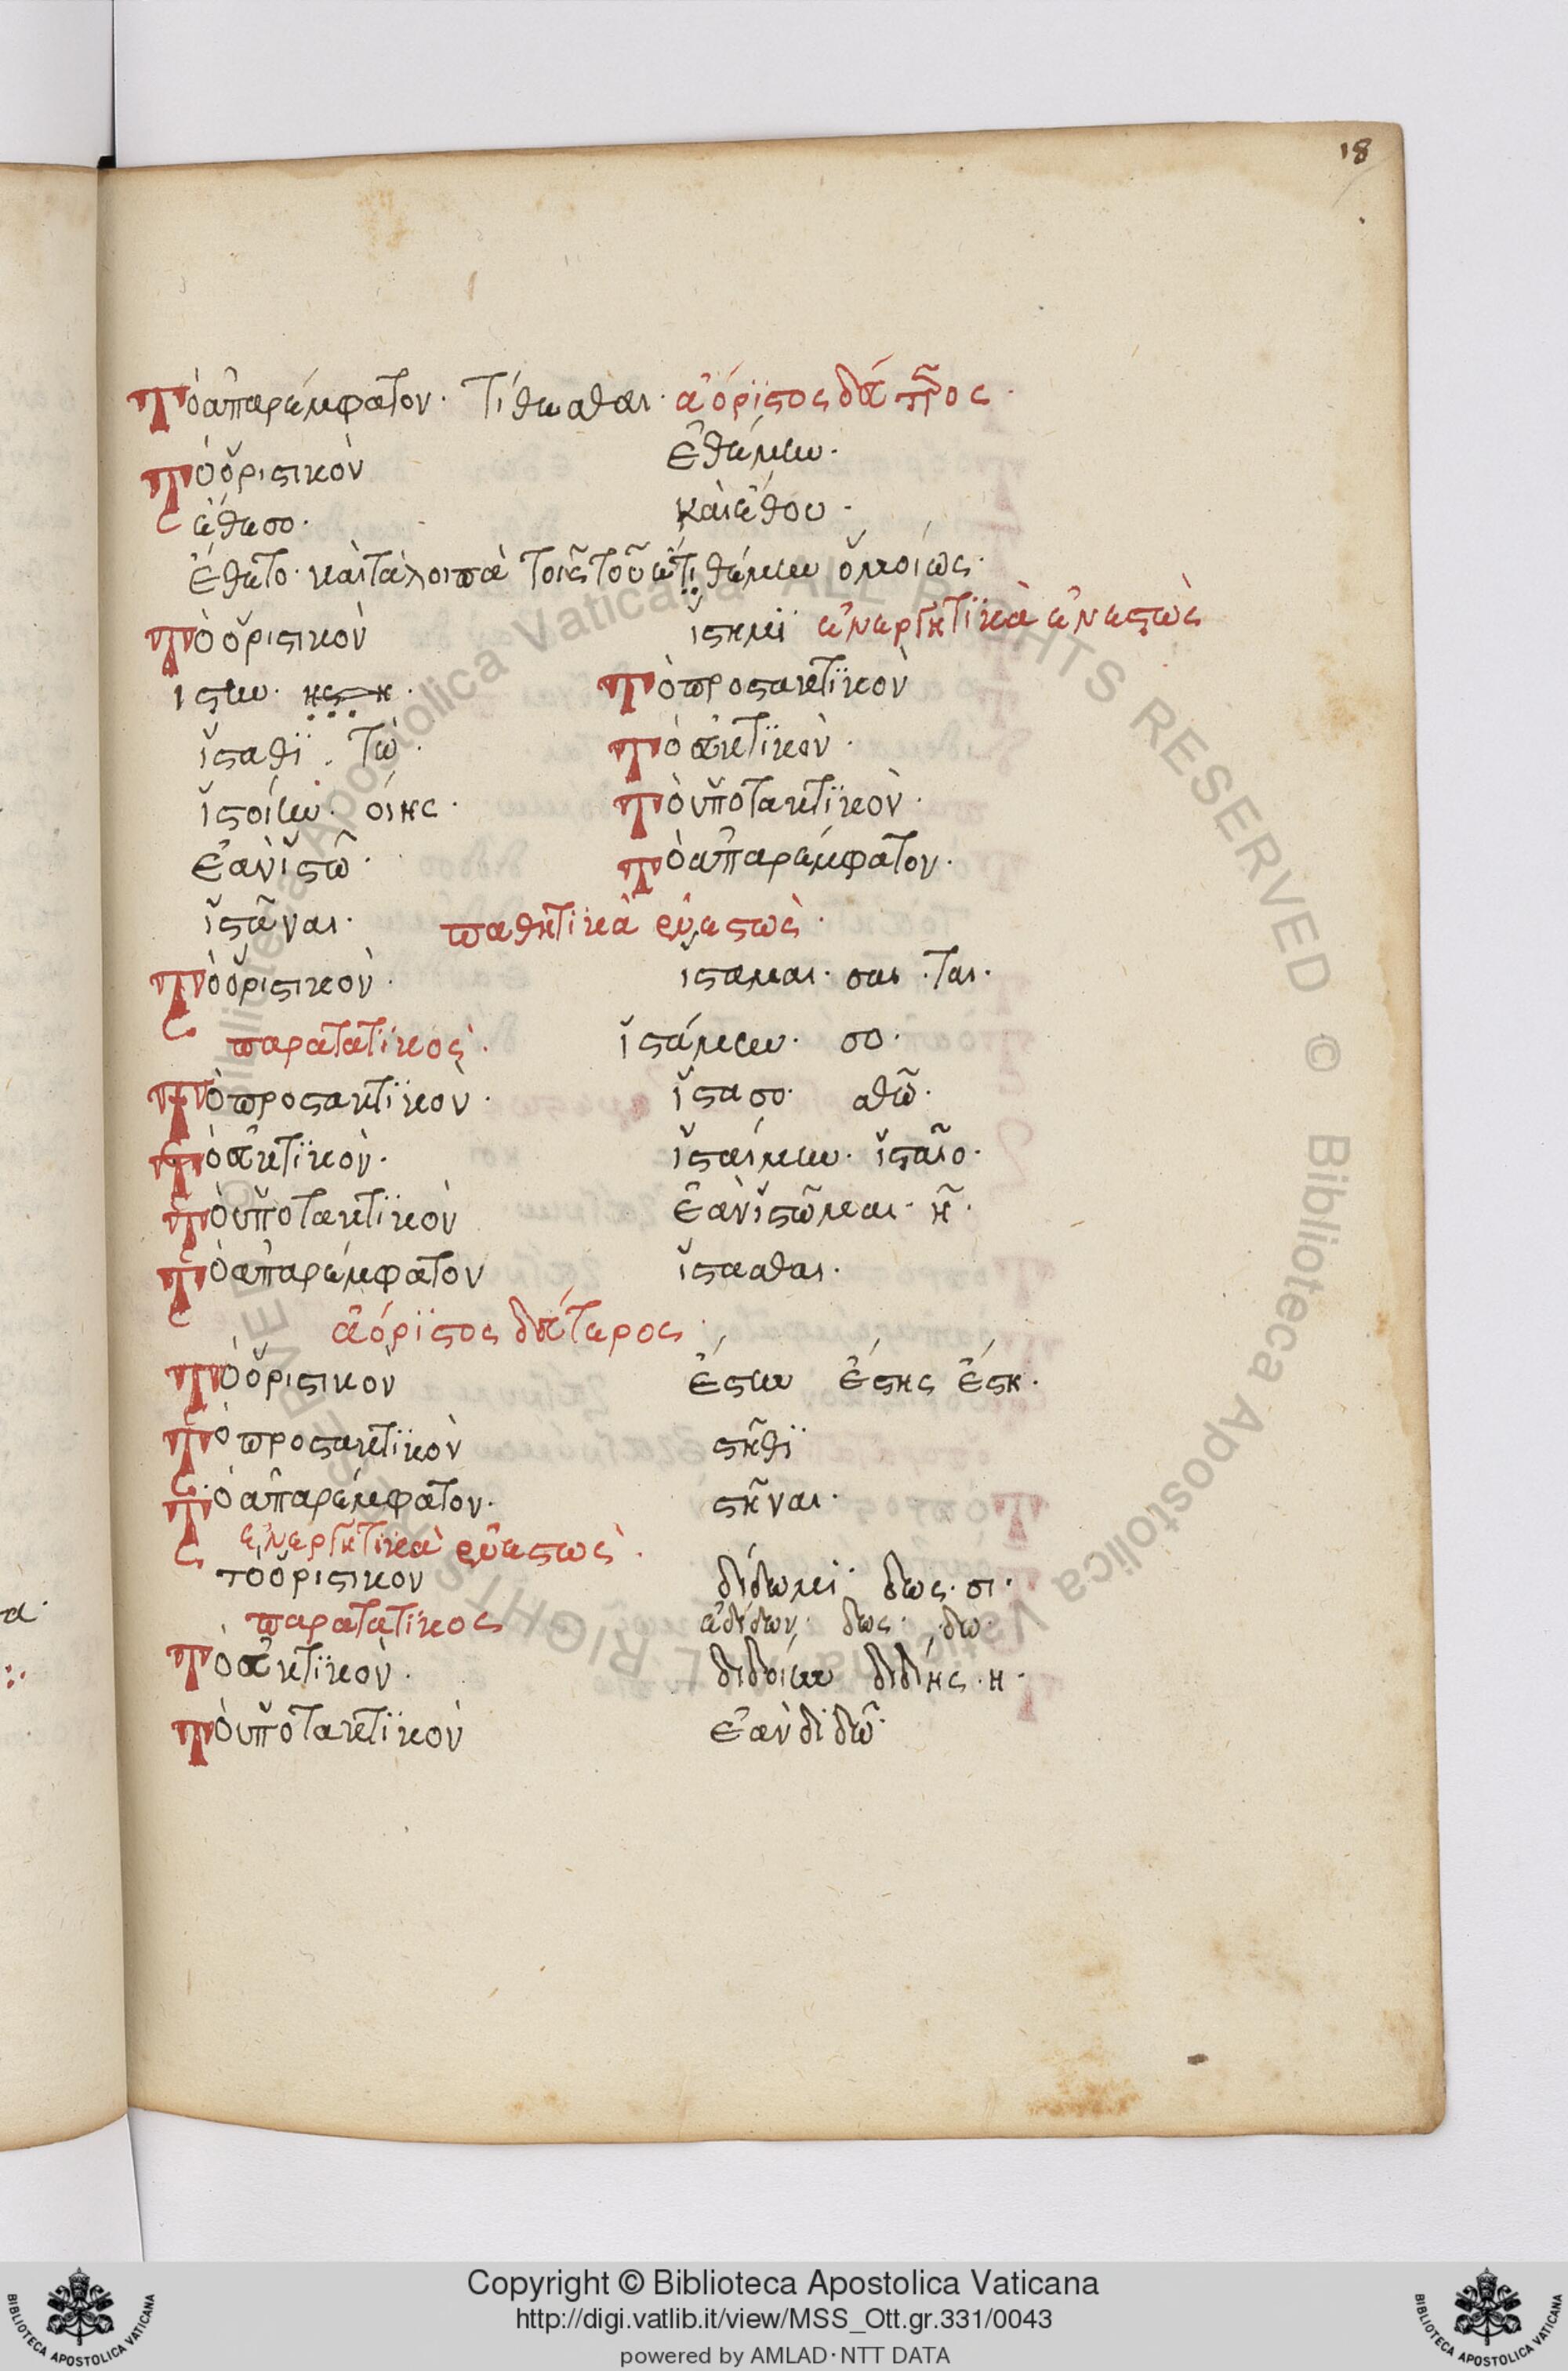 18
Τὸ ἀπαρέμφατον· τίθεσθαι· ἀόριστος δεύτερος·
Τὸ ὁριστικὸν ἐθέμην·
ἔθεσο· καὶ ἔθου·
ἔθετο· καὶ τὰ λοιπὰ τοῖς τοῦ ἐτιθέμην ὁμοίως·
Τὸ ὁριστικὸν ἵστημι ἐνεργητικὰ ἐνεστὼς
ιστην· Τὸ προστακτικὸν
ἵσταθι· τω· Τὸ εὐκτικὸν·
ἱστοίην· οίης· Τὸ ὑποτακτικὸν·
ἐὰν ἱστῶ· Τὸ ἀπαρέμφατον·
ἱστᾶναι· παθητικὰ ἐνεστὼς·
Τὸ ὁριστικὸν· ἵσταμαι· σαι· ται·
παρατατικὸς· ἱστάμην· σο·
Τὸ προστακτικὸν· ἵστασο· σθω·
Τὸ εὐκτικὸν· ἱσταίμην· ἱσταῖο·
Τὸ ὑποτακτικὸν ἐὰν ἱστῶμαι· ῆ·
Τὸ ἀπαρέμφατον ἵστασθαι·
ἀόριστος δεύτερος·
Τὸ ὁριστικὸν ἔστην ἔστης ἔστη·
Τὸ προστακτικὸν στῆθι
Τὸ ἀπαρέμφατον· στῆναι·
ἐνεργητικὰ ἐνεστὼς·
τὸ ὁριστικον δίδωμι· δως· σι·
παρατατικος ἐδίδων· δως· δω·
Τὸ εὐκτικὸν· διδοίην διδίης· η·
Τὸ ὑποτακτικὸν ἐὰν διδῶ·
Copyright © Biblioteca Apostolica Vaticana
http://digi.vatlib.it/view/MSS_Ott.gr.331/0043
powered by AMLAD·NTT DATA